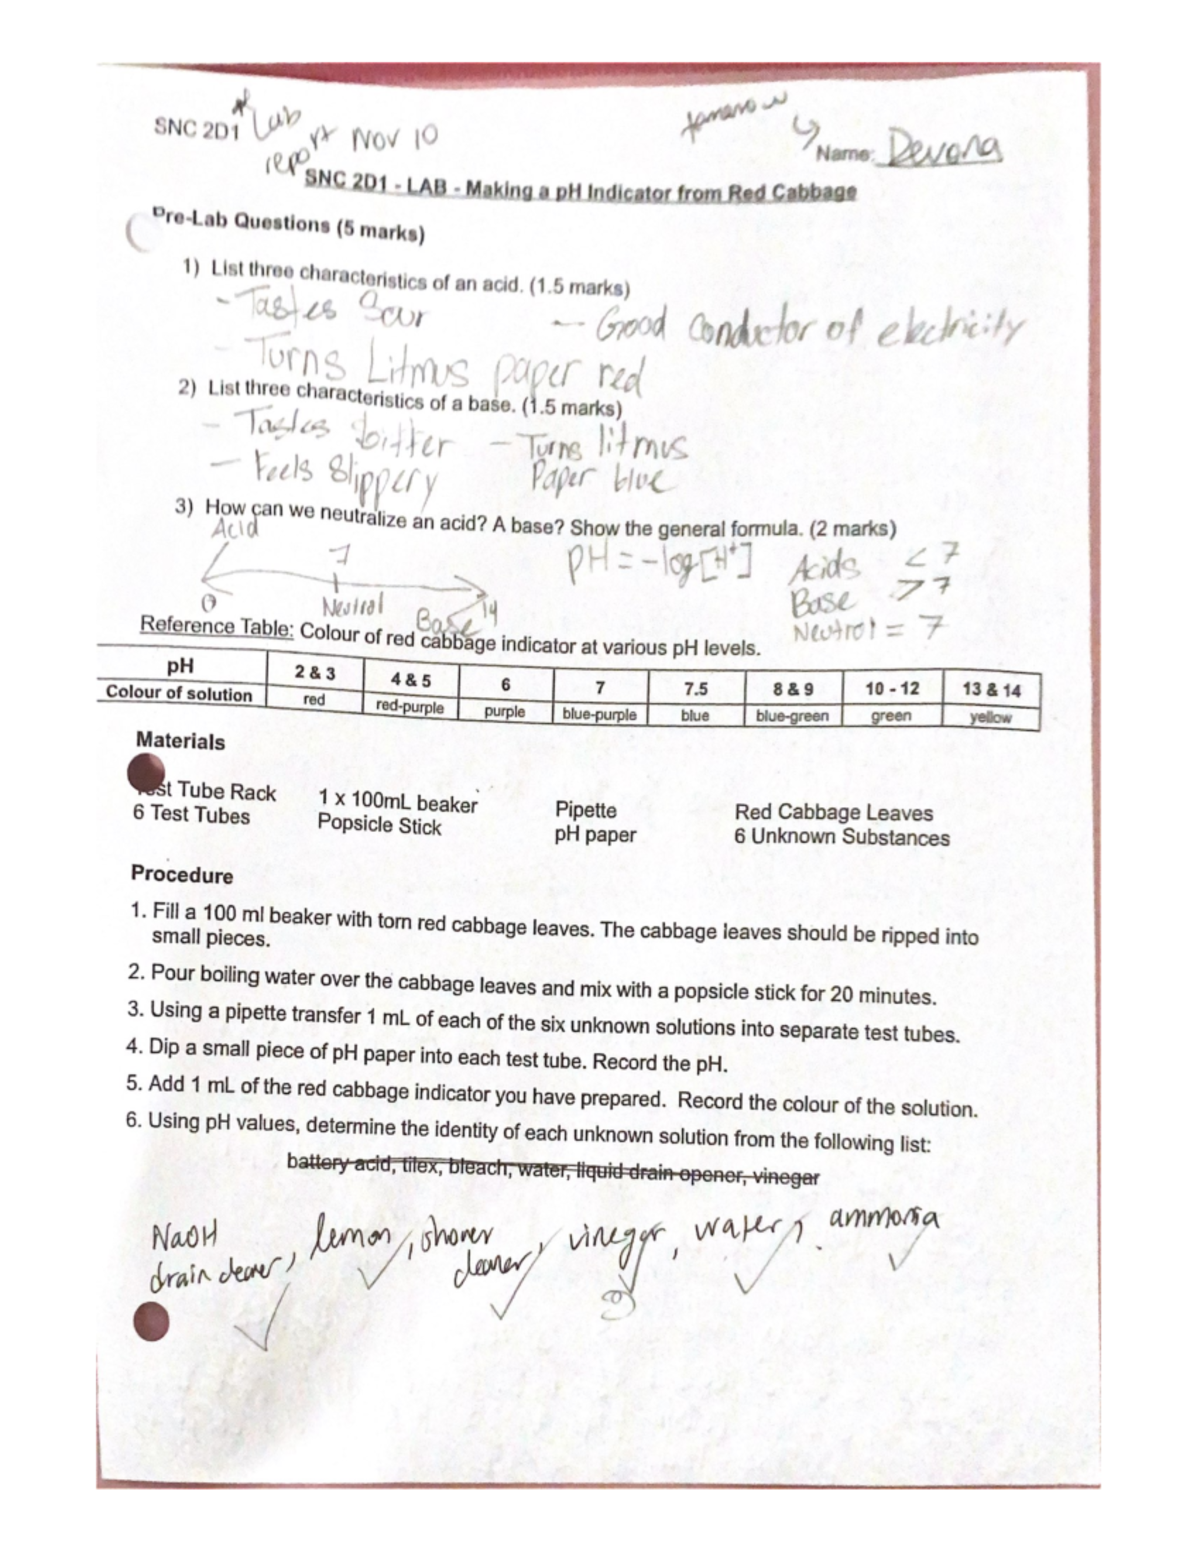 SNC 2D1 * Lab
report Nov 10
Name: Devona
SNC 2D1 - LAB - Making a pH Indicator from Red Cabbage
Pre-Lab Questions (5 marks)
1) List three characteristics of an acid. (1.5 marks)
- Tastes Sour
- Good conductor of electricity
- Turns Litmus paper red
2) List three characteristics of a base. (1.5 marks)
- Tastes bitter
- Feels Slippery
- Turns litmus
Paper blue
3) How can we neutralize an acid? A base? Show the general formula. (2 marks)
Acid
7
0
Neutral
Base
14
pH = -log[H+]
Acids < 7
Base > 7
Neutral = 7
Reference Table: Colour of red cabbage indicator at various pH levels.
pH 2 & 3 4 & 5 6 7 7.5 8 & 9 10 - 12 13 & 14
Colour of solution red red-purple purple blue-purple blue blue-green green yellow
Materials
Test Tube Rack 1 x 100mL beaker Pipette Red Cabbage Leaves
6 Test Tubes Popsicle Stick pH paper 6 Unknown Substances
Procedure
1. Fill a 100 ml beaker with torn red cabbage leaves. The cabbage leaves should be ripped into
small pieces.
2. Pour boiling water over the cabbage leaves and mix with a popsicle stick for 20 minutes.
3. Using a pipette transfer 1 mL of each of the six unknown solutions into separate test tubes.
4. Dip a small piece of pH paper into each test tube. Record the pH.
5. Add 1 mL of the red cabbage indicator you have prepared. Record the colour of the solution.
6. Using pH values, determine the identity of each unknown solution from the following list:
battery acid, tilex, bleach, water, liquid drain opener, vinegar
NaOH lemon, shower vinegar, water, ammonia
drain cleaner, cleaner,